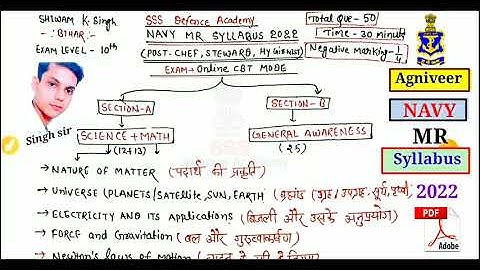 SHIWAM K. Singh
BIHAR
EXAM LEVEL - 10th
Singh sir
SSS Defence Academy
NAVY MR SYLLABUS 2022
(POST-CHEF, STEWARD, HYGIENIST)
EXAM → Online CBT MODE
Total Que - 50
Time - 30 minute
Negative Marking - 1/4
SECTION-A
SECTION-B
SCIENCE + MATH
(12+13)
GENERAL AWARENESS
(25)
→ NATURE OF MATTER (पदार्थ की प्रकृति)
→ UNIVERSE (PLANETS/Satellite, SUN, EARTH) (ब्रह्मांड (ग्रह/उपग्रह, सूर्य, पृथ्वी)
→ ELECTRICITY AND ITS Applications (बिजली और उसके अनुप्रयोग)
→ FORCE and Gravitation (बल और गुरुत्वाकर्षण)
→ Newton's laws of Motion
Agniveer
NAVY
MR
Syllabus
2022
PDF
Adobe